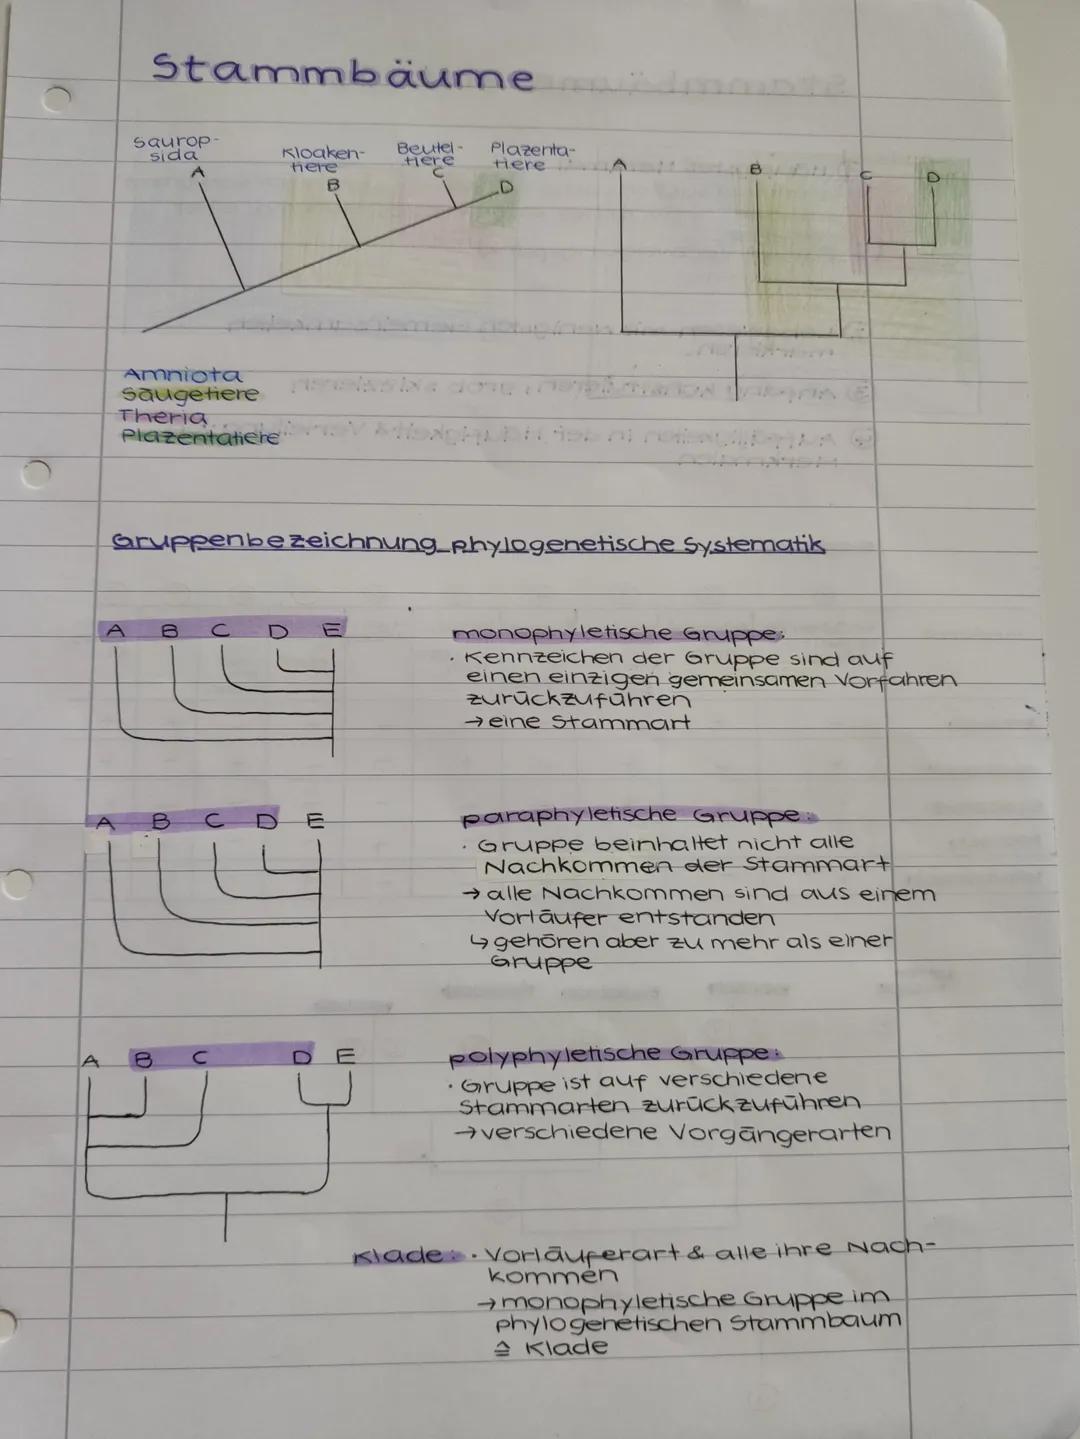 Stammbäume
Saurop-
sida
A
Kloaken-
tiere
B
Beutel-
tiere
C
Plazenta-
tiere
D
A B C D
Amniota
Säugetiere
Theria
Plazentatiere
Gruppenbezeichnung phylogenetische Systematik
A B C D E
monophyletische Gruppe:
· Kennzeichen der Gruppe sind auf
einen einzigen gemeinsamen Vorfahren
zurückzuführen
→ eine Stammart
A B C D E
paraphyletische Gruppe:
· Gruppe beinhaltet nicht alle
Nachkommen der Stammart
→ alle Nachkommen sind aus einem
Vorläufer entstanden
↳ gehören aber zu mehr als einer
Gruppe
A B C D E
polyphyletische Gruppe:
· Gruppe ist auf verschiedene
Stammarten zurückzuführen
→ verschiedene Vorgängerarten
Klade: · Vorläuferart & alle ihre Nach-
kommen
→ monophyletische Gruppe im
phylogenetischen Stammbaum
≙ Klade